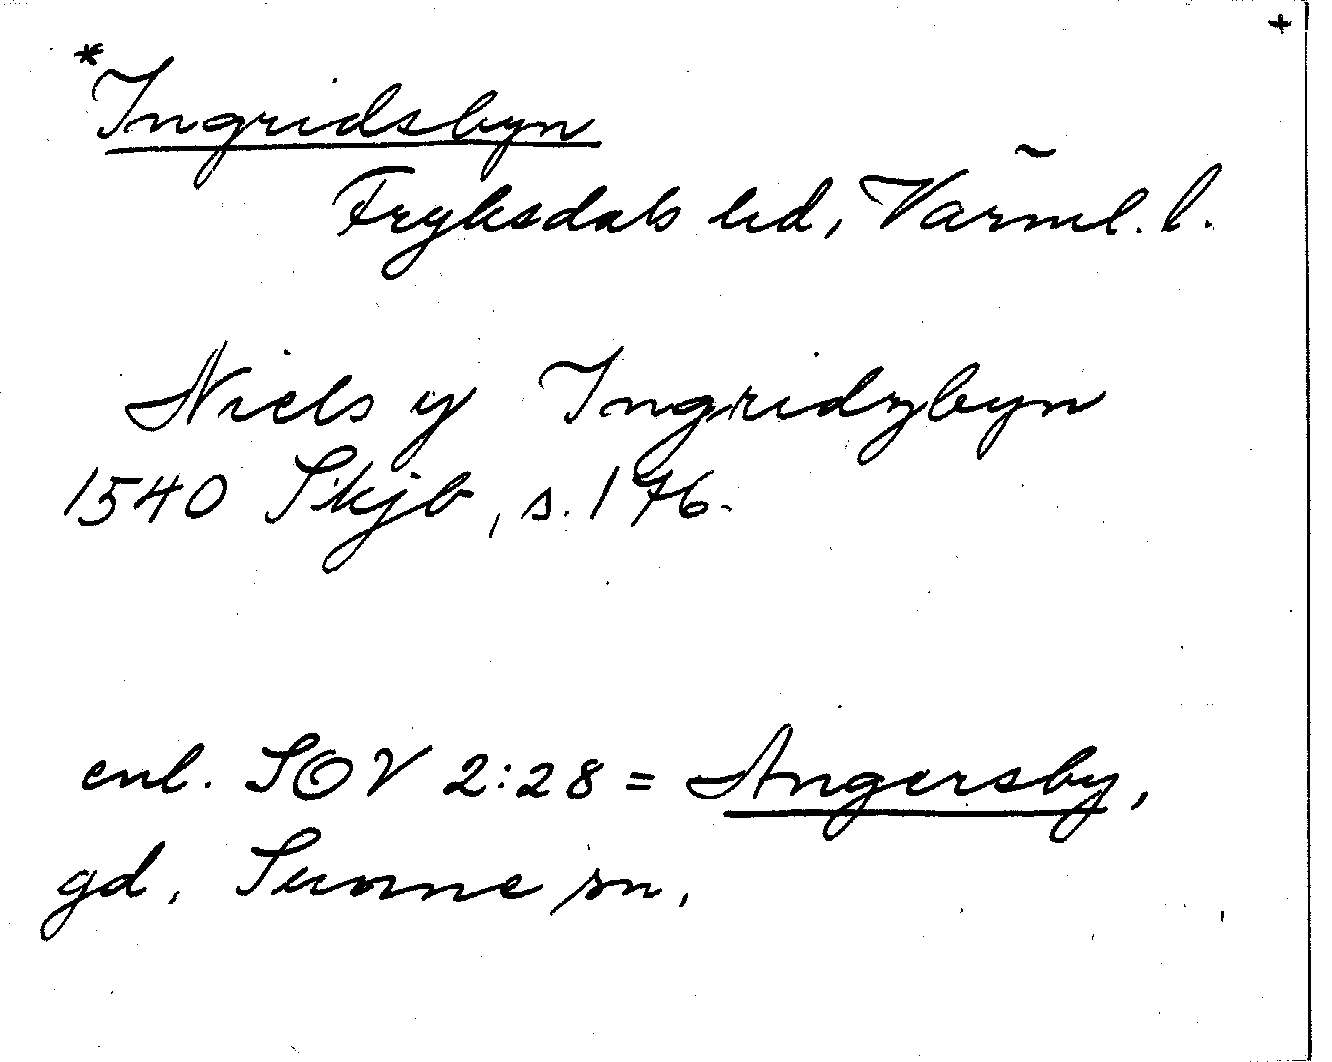 +
*Ingridsbyn
Fryksdals hd, Värml. l.
Niels y Ingridzbyn
1540 Skjb, s. 176.
enl. SOV 2:28 = Angersby,
gd, Sunne sn.